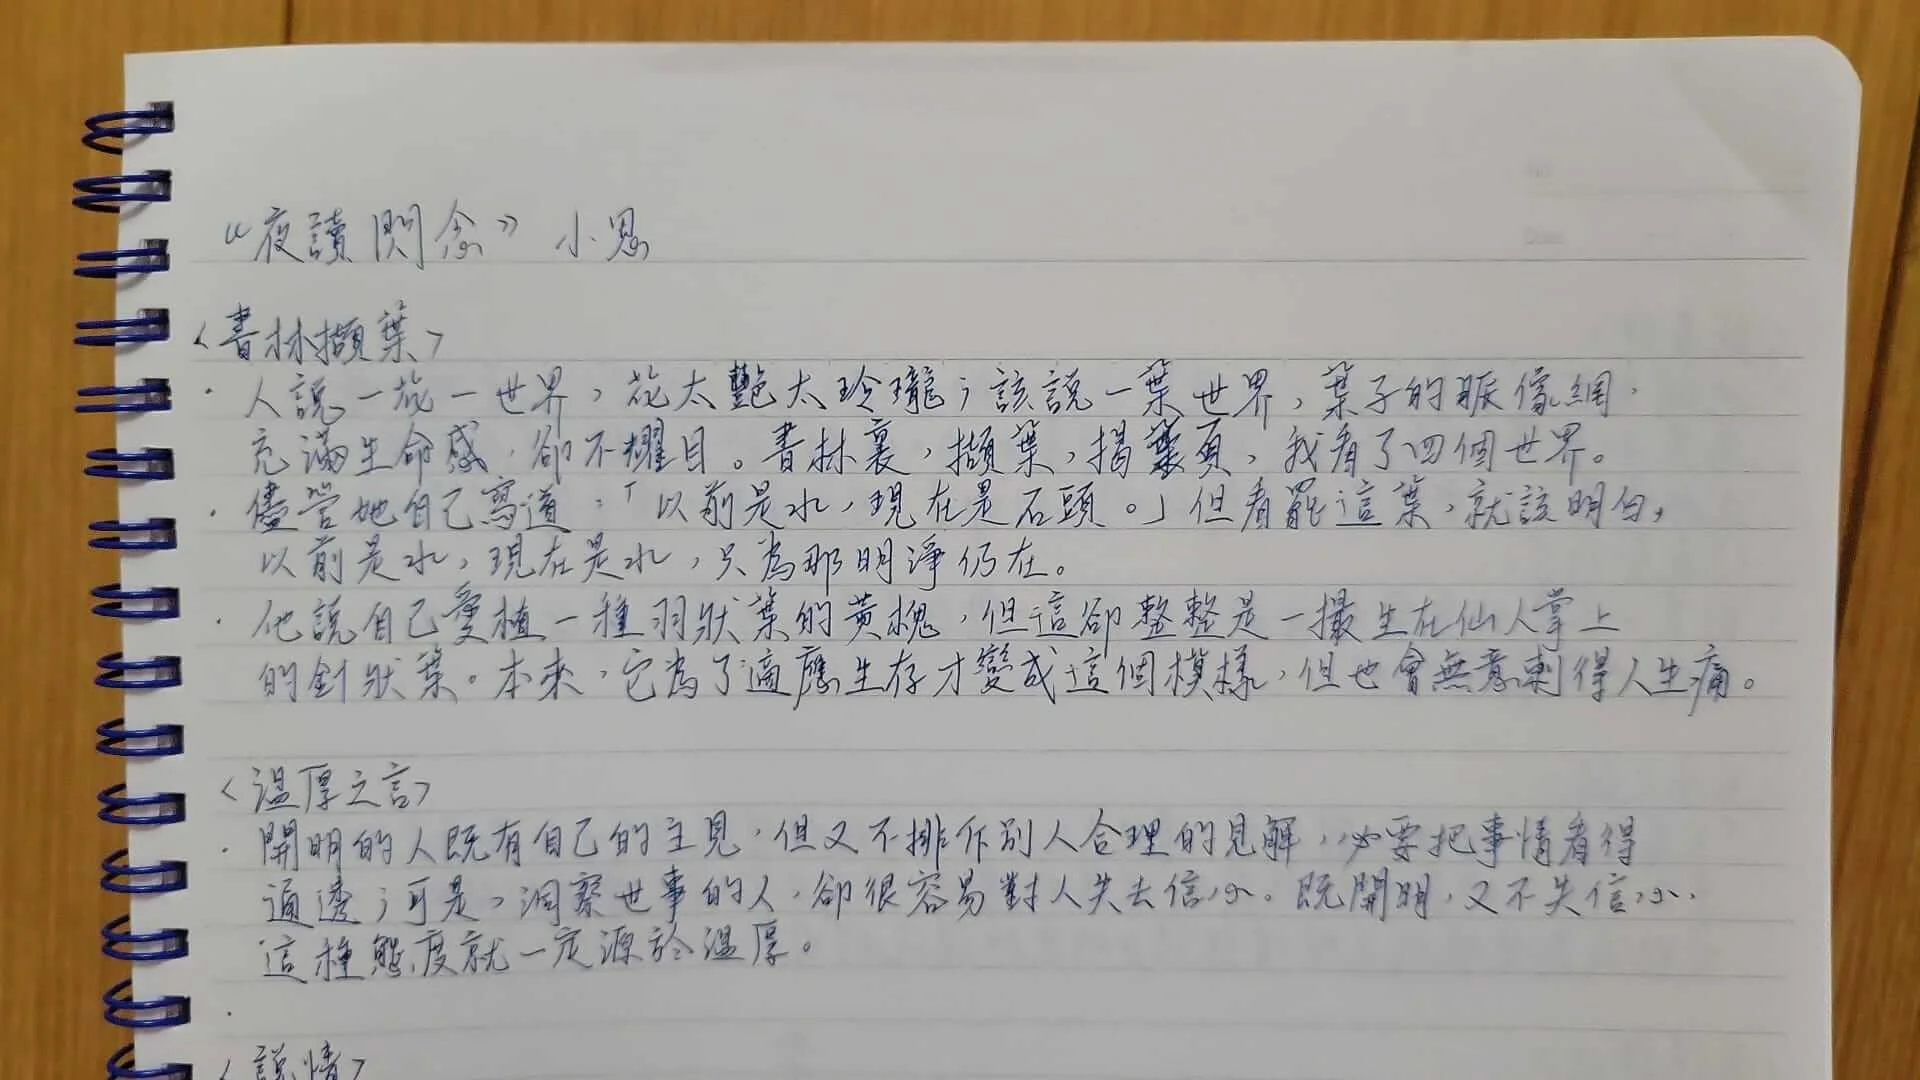 《夜讀閃念》 小思
〈書林擷葉〉
· 人說一花一世界，花太艷太玲瓏；該說一葉世界，葉子的脈像網，
充滿生命感，卻不耀目。書林裏，擷葉，揭葉頁，我看了四個世界。
· 儘管她自己寫道：「以前是水，現在是石頭。」但看罷這葉，就該明白，
以前是水，現在是水，只為那明淨仍在。
· 他說自己愛植一種羽狀葉的黃槐，但這卻整整是一撮生在仙人掌上
的針狀葉。本來，它為了適應生存才變成這個模樣，但也會無意刺得人生痛。
〈溫厚之言〉
· 開明的人既有自己的主見，但又不排斥別人合理的見解，必要把事情看得
通透；可是，洞察世事的人，卻很容易對人失去信心。既開明，又不失信心，
這種態度就一定源於溫厚。
·
〈說情〉